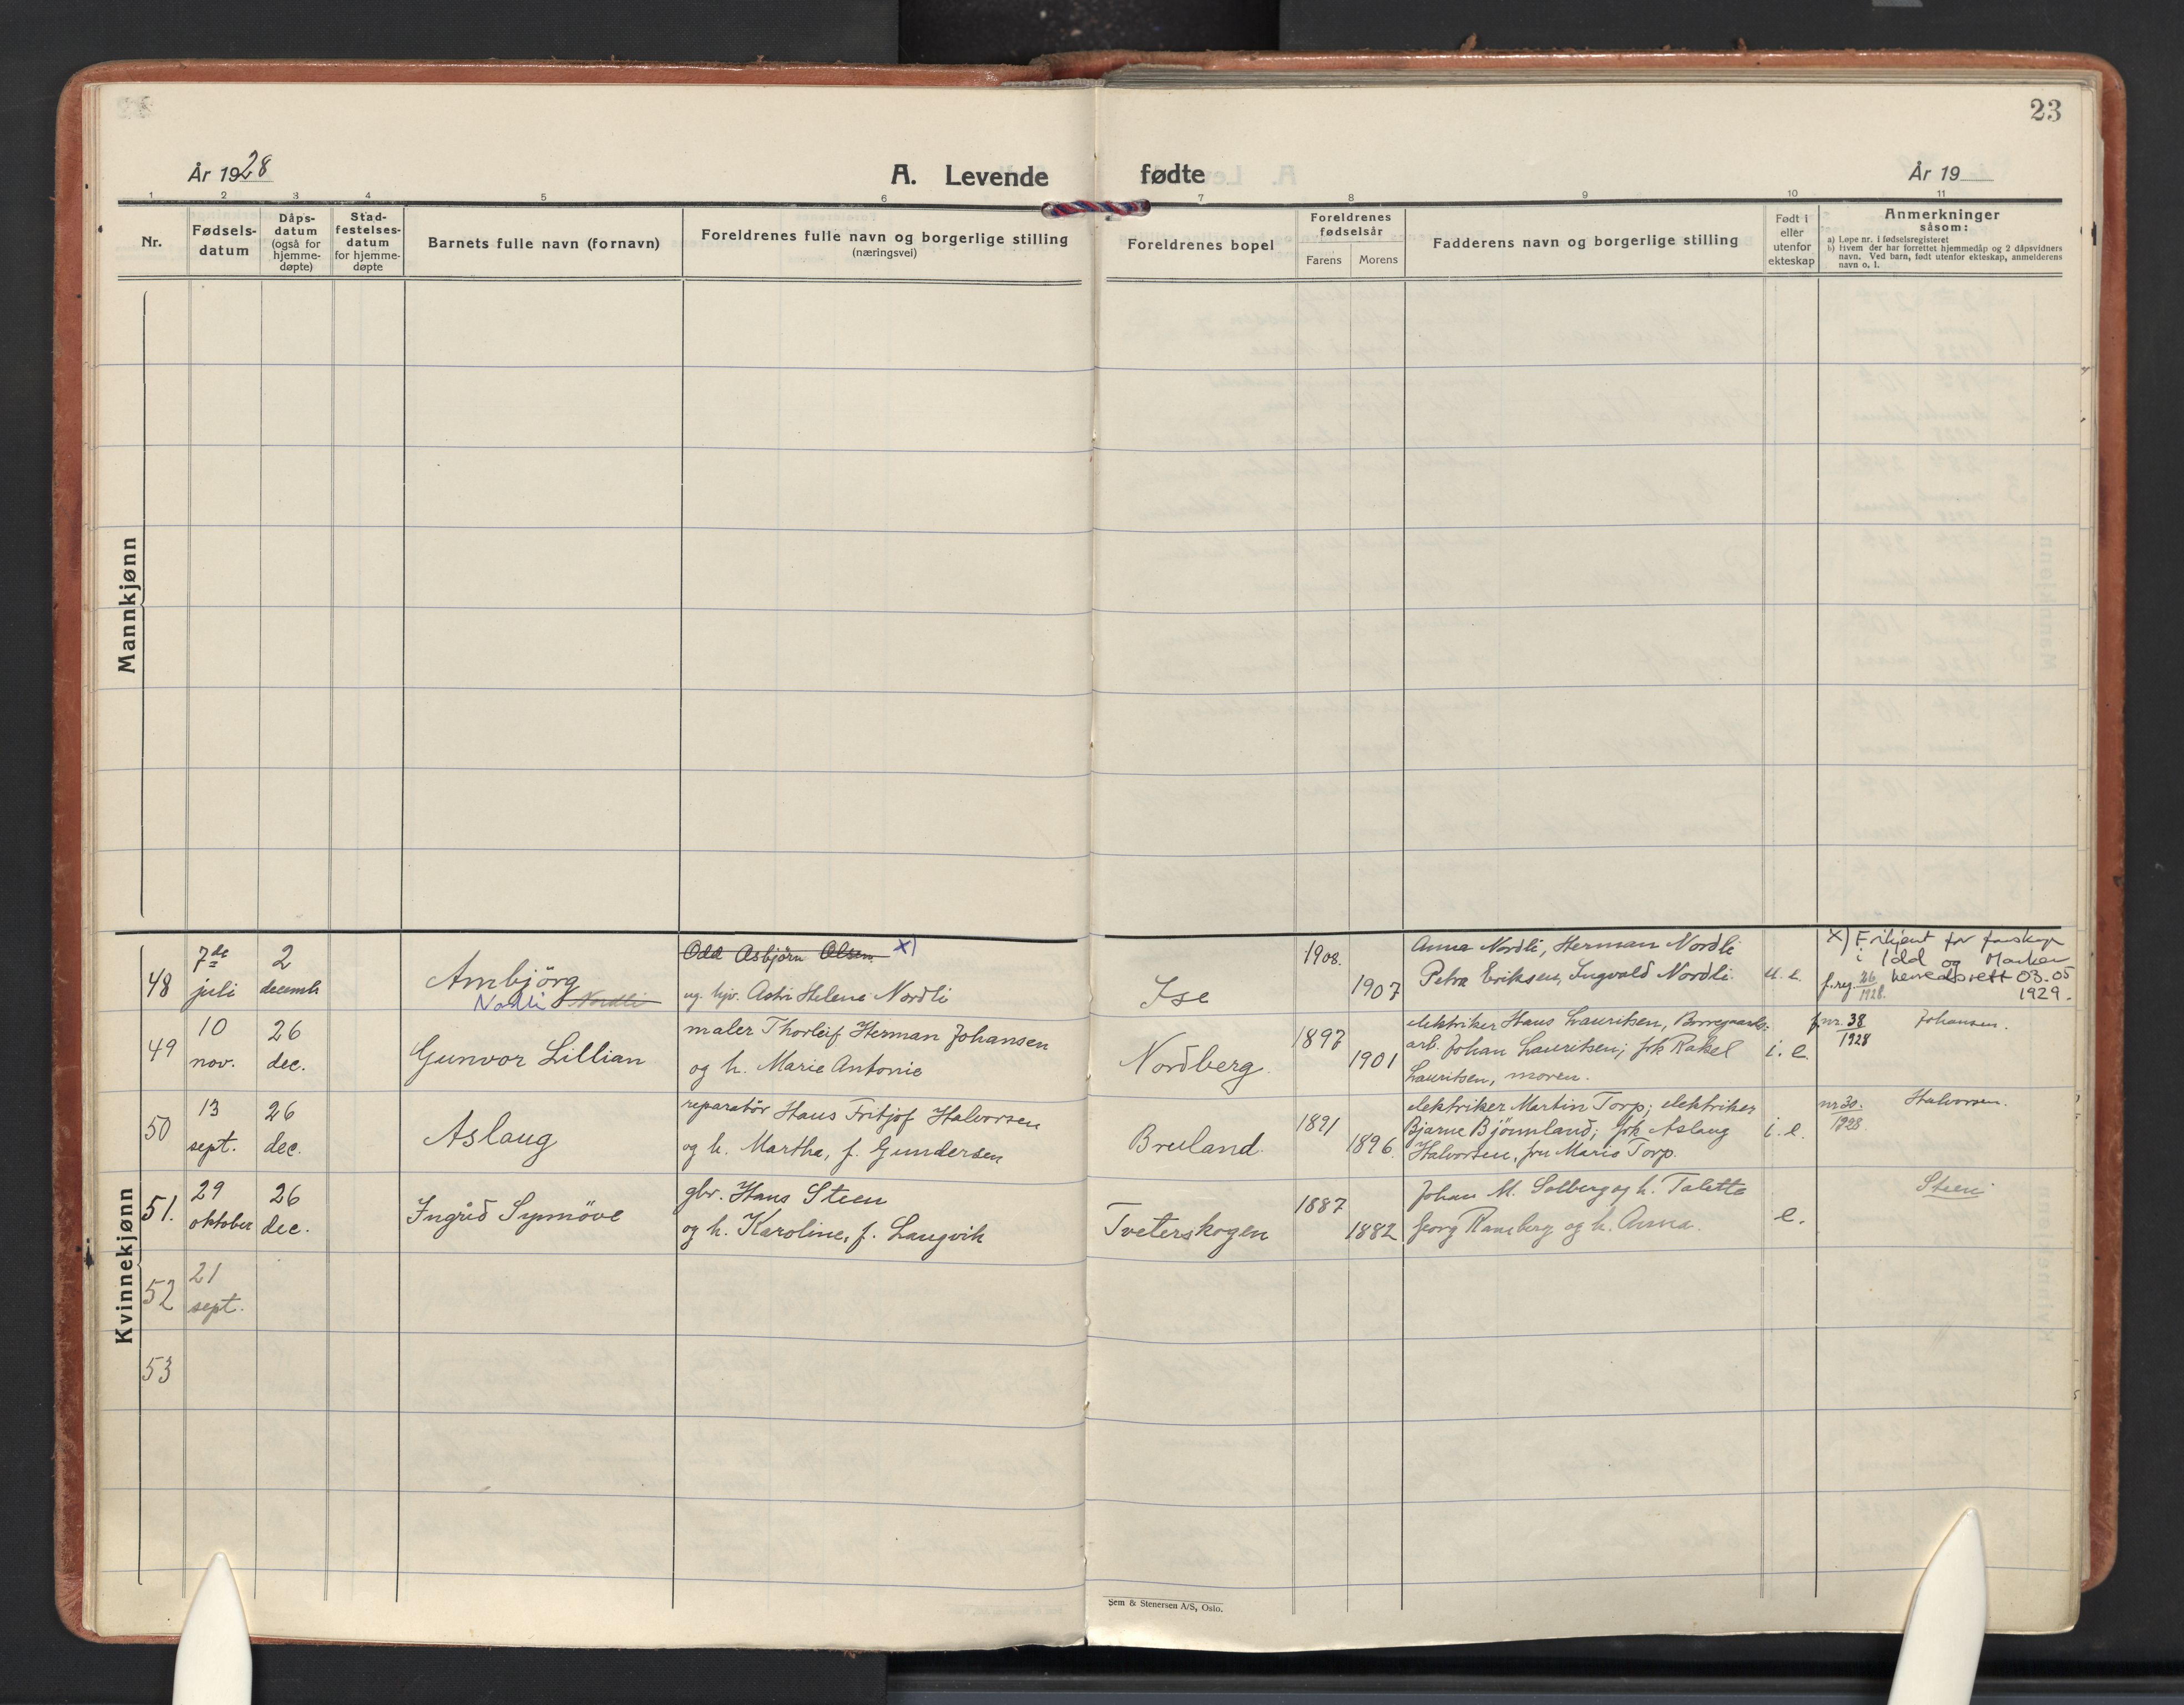 23
År 1928
A. Levende
fødte
År 19
1 2 3 4 5 6 7 8 9 10 11
Nr.
Fødsels-
datum
Dåps-
datum
(også for
hjemme-
døpte)
Stad-
festelses-
datum
for hjemme-
døpte
Barnets fulle navn (fornavn)
Foreldrenes fulle navn og borgerlige stilling
(næringsvei)
Foreldrenes bopel
Foreldrenes
fødselsår
Farens Morens
Fadderens navn og borgerlige stilling
Født i
eller
utenfor
ekteskap
Anmerkninger
såsom:
a) Løpe nr. i fødselsregisteret
b) Hvem der har forrettet hjemmedåp og 2 dåpsvidners
navn. Ved barn, født utenfor ekteskap, anmelderens
navn o. l.
Mannkjønn
Kvinnekjønn
48
7de
juli
2
decemb
Ambjörg
Nordli Nordli
Odd Asbjörn Olsen x)
ug. hjv. Astri Helene Nordli
Ise
1908.
1907
Anna Nordli, Herman Nordli
Petra Eriksen, Ingvald Nordli.
u. e.
x) Frikjent for farskap
i Idd og Marker
f.reg. 26/1928. herredsrett 03.05
1929.
49
10
nov.
26
dec.
Gunvor Lillian
maler Thorleif Herman Johansen
og h. Marie Antonie
Nordberg.
1897
1901
elektriker Hans Lauritsen, Borregaards-
arb. Johan Lauritsen; frk Rakel
Lauritsen, moren.
i. e.
f.nr. 38
1928
Johansen.
50
13
sept.
26
dec.
Aslaug
reparatör Hans Fritjof Halvorsen
og h. Martha, f. Gundersen
Breiland.
1891
1896.
elektriker Martin Torp; elektriker
Bjarne Björnland; frk Aslaug
Halvorsen, fru Marie Torp.
i. e.
nr 30.
1928.
Halvorsen.
51.
29
oktober
26
dec.
Ingrid Synnöve
gbr. Hans Steen
og h. Karoline, f. Langvik
Tveterskogen
1887
1882
Johan M. Solberg og h. Talette
Georg Ramberg og h. Anna.
e.
Steen
52
21
sept.
53
Sem & Stenersen A/S, Oslo.